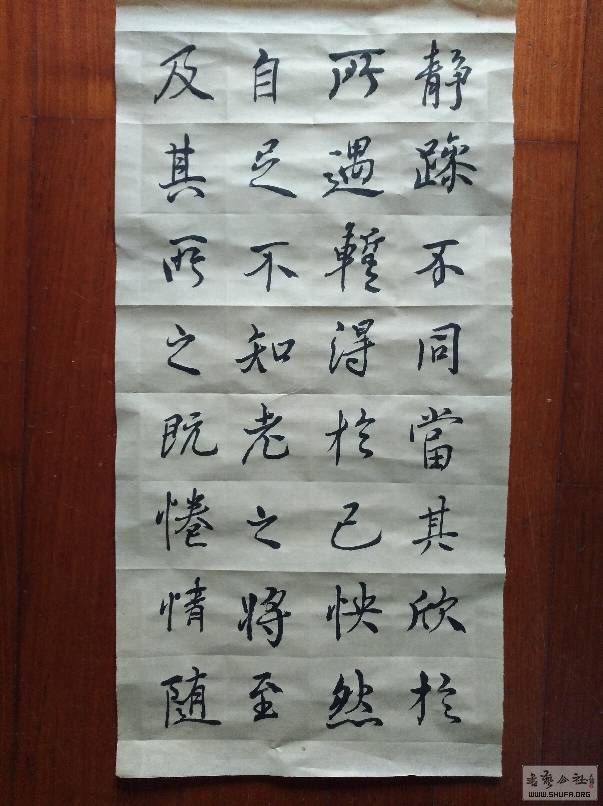 静躁不同當其欣於
所遇蹔得於己怏然
自足不知老之将至
及其所之既惓情随
書藝公社
WWW.SHUFA.ORG